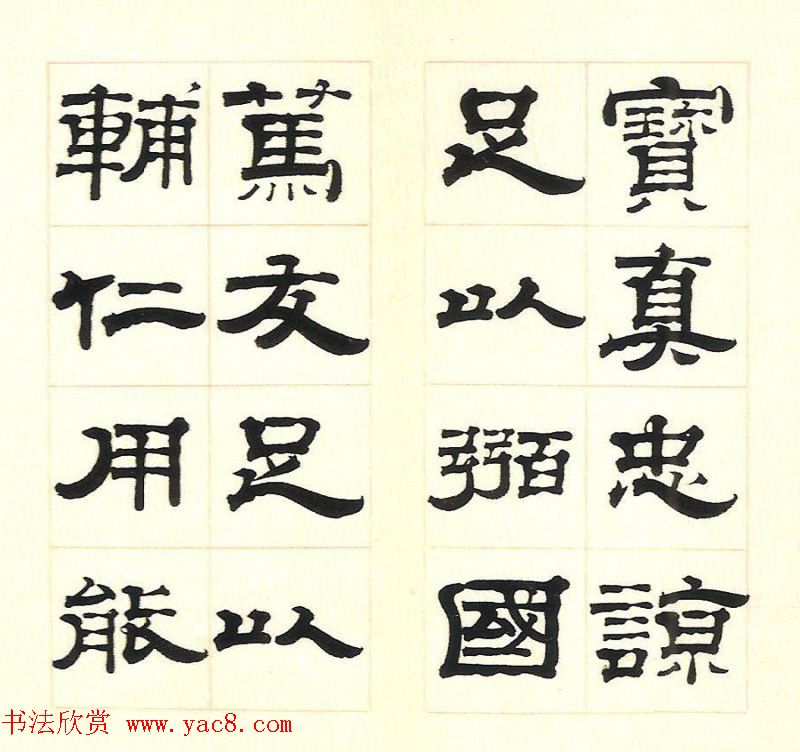 寶真忠諒
足以弻國
篤友足以
輔仁用能
书法欣赏 www.yac8.com